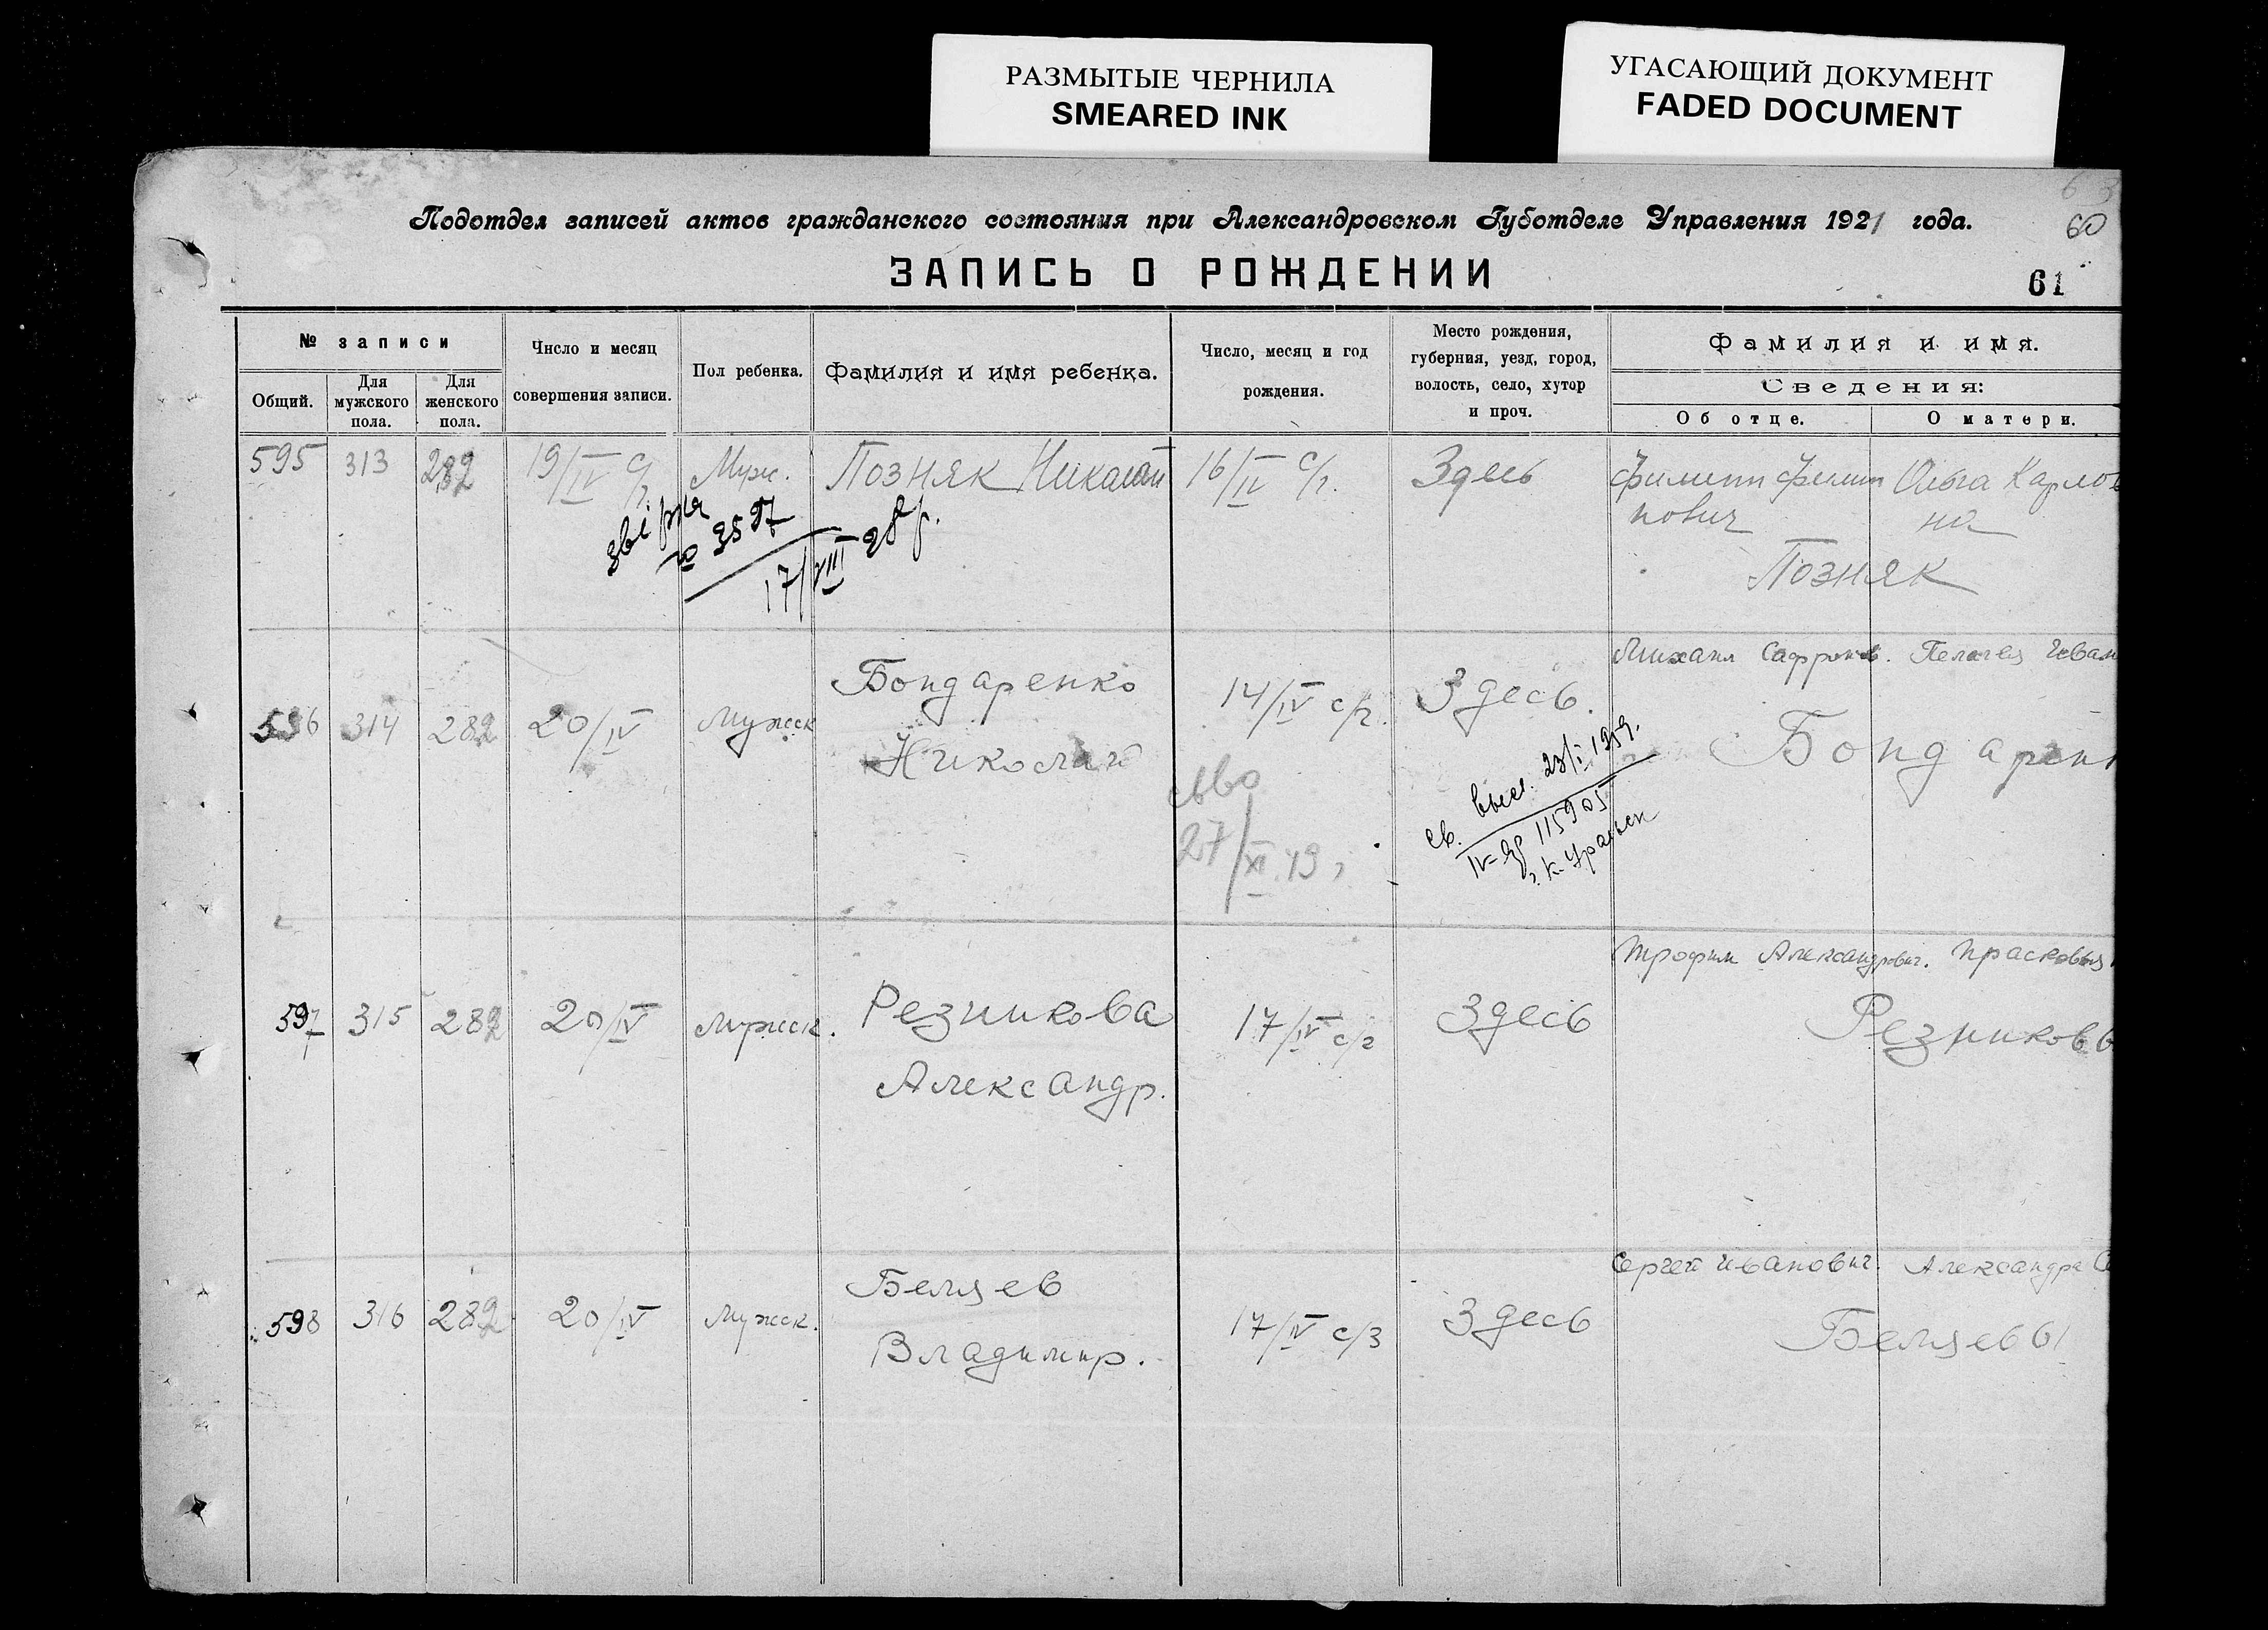 РАЗМЫТЫЕ ЧЕРНИЛА
SMEARED INK
УГАСАЮЩИЙ ДОКУМЕНТ
FADED DOCUMENT
Подотдел записей актов гражданского состояния при Александровском Губотделе Управления 1921 года.
60
ЗАПИСЬ О РОЖДЕНИИ
61
№ записи
Общий.
Для мужского пола.
Для женского пола.
Число и месяц совершения записи.
Пол ребенка.
Фамилия и имя ребенка.
Число, месяц и год рождения.
Место рождения, губерния, уезд, город, волость, село, хутор и проч.
Фамилия и имя.
Сведения:
Об отце.
О матери.
595 313 282 19/IV с/г. Муж. Позняк Николай 16/IV с/г. Здесь Филипп Филип Ольга Карлов
пович на
Позняк
звірна
№ 3597
17/VIII 28 р.
Михаил Сафронов. Пелагея Иван
596 314 282 20/IV Мужск Бондаренко 14/IV с/г. Здесь.
Николай Бондарен
27/XI.49
св. выс. 23/I 1959.
115905
Трофим Александрович. Прасковья
597 315 282 20/IV Мужск. Резникова 17/IV с/г Здесь Резниковы
Александр.
Сергей Иванович. Александра С
598 316 282 20/IV Мужск. Беляев 17/IV с/г Здесь Беляевы
Владимир.